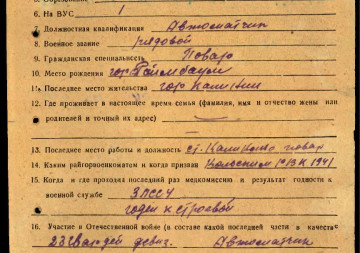 6. На ВУС 1
7. Должностная квалификация Автоматчик
8. Военное звание рядовой
9. Гражданская специальность Повар
10. Место рождения гор.
11. Последнее место жительства гор
12. Где проживает в настоящее время семья (фамилия, имя и отчество жены или
родителей и точный их адрес)
13. Последнее место работы и должность ст. повар
14. Каким райгорвоенкоматом и когда призван 1941
15. Когда и где проходил последний раз медкомиссию и результат годности к
военной службе ЭПССЧ
годен к строевой
16. Участие в Отечественной войне (в составе какой последней части в качестве
23 Гвардей дивиз. Автоматчик